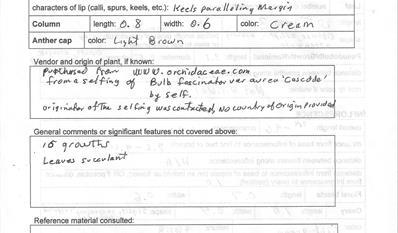 characters of lip (calli, spurs, keels, etc.): Keels paralleling Margin
Column length: 0.8 width: 0.6 color: Cream
Anther cap color: Light Brown
Vendor and origin of plant, if known:
purchased from WWW.orchidaceae.com
from a selfing of Bulb fascinator var aurea 'Cascade'
by self.
originator of the selfing was contacted, No country of Origin Provided
General comments or significant features not covered above:
16 growths
Leaves succulant
Reference material consulted: